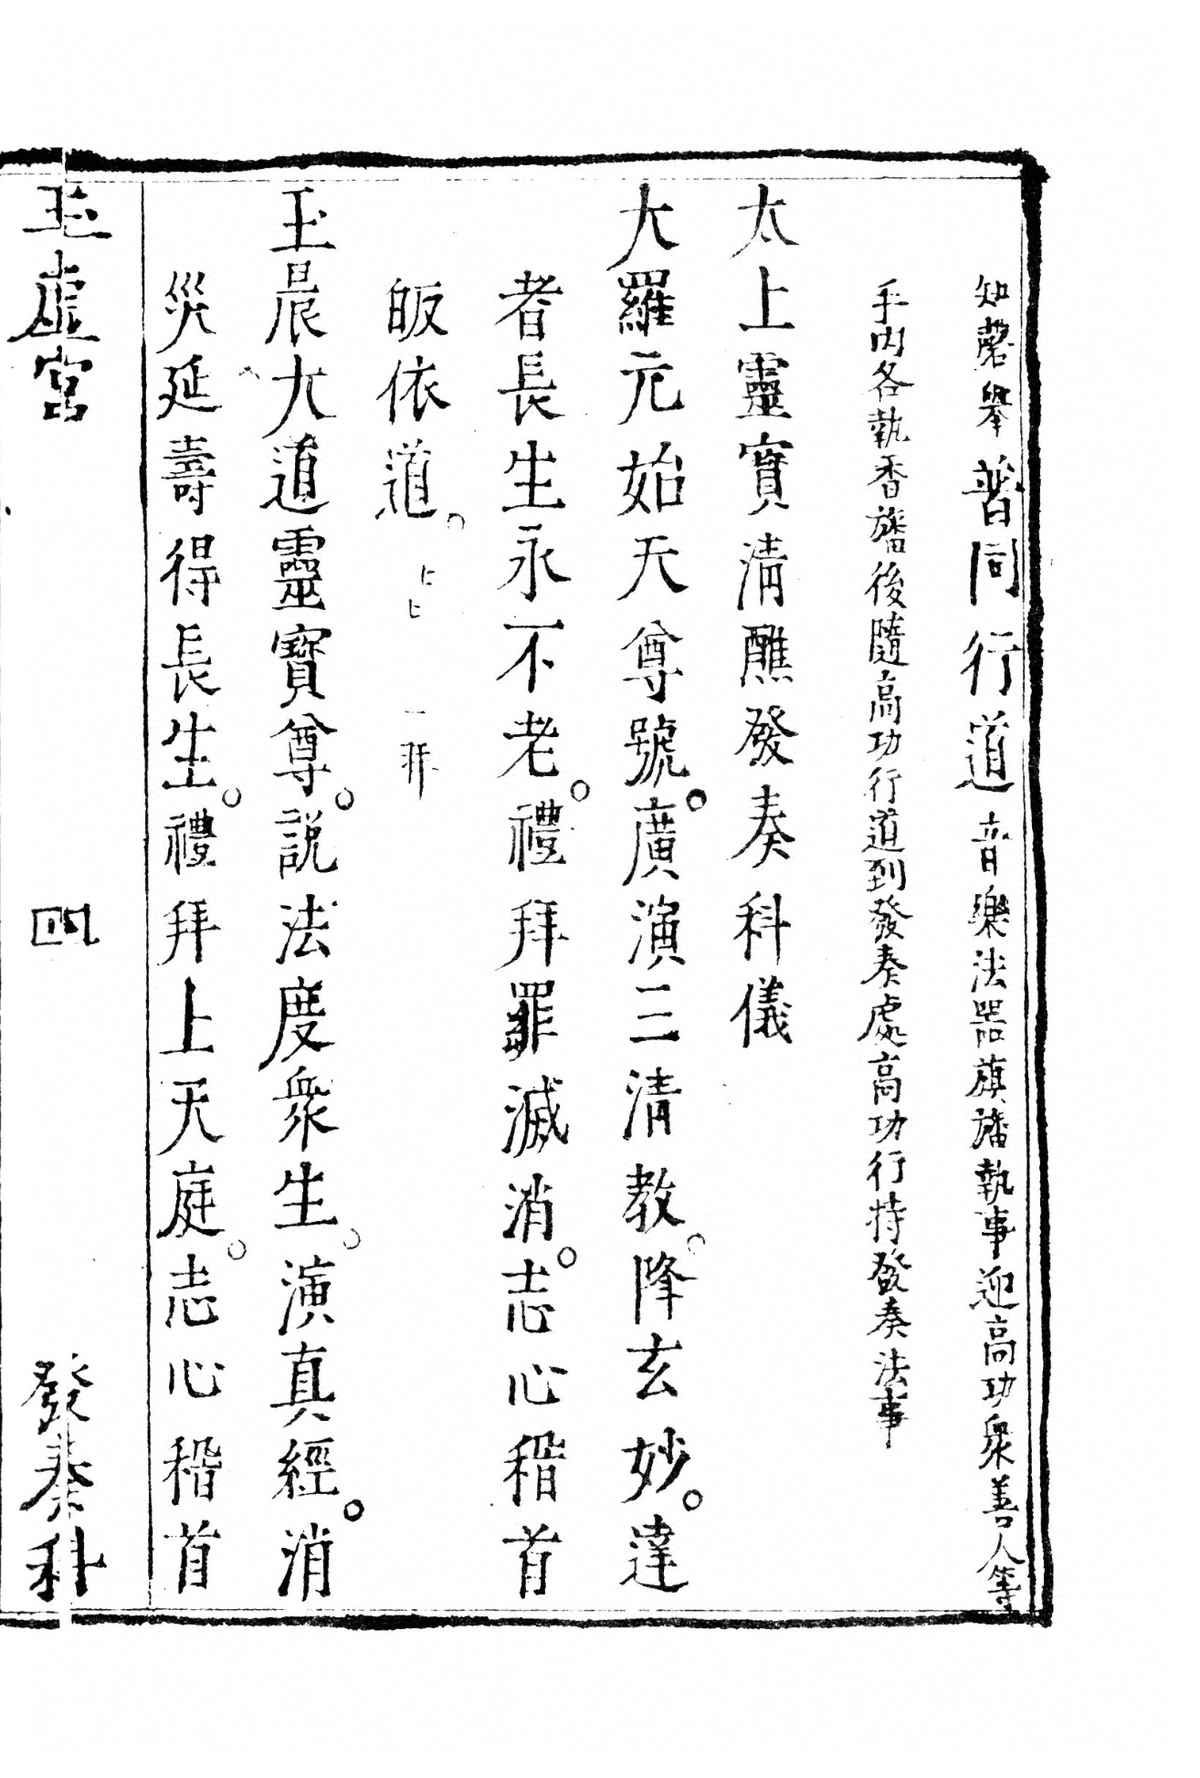 知磬舉普同行道音樂法器旗旛執事迎高功衆善人等
手内各執香旛後隨高功行道到發奏處高功行持發奏法事
太上靈寶清醮發奏科儀
大羅元始天尊號。廣演三清教。降玄妙。達
者長生永不老。禮拜罪滅消。志心稽首
皈依道。 上上 一拜
玉晨大道靈寶尊。説法度衆生。演真經。消
災延壽得長生。禮拜上天庭。志心稽首
玉虛宮 四 發奏科